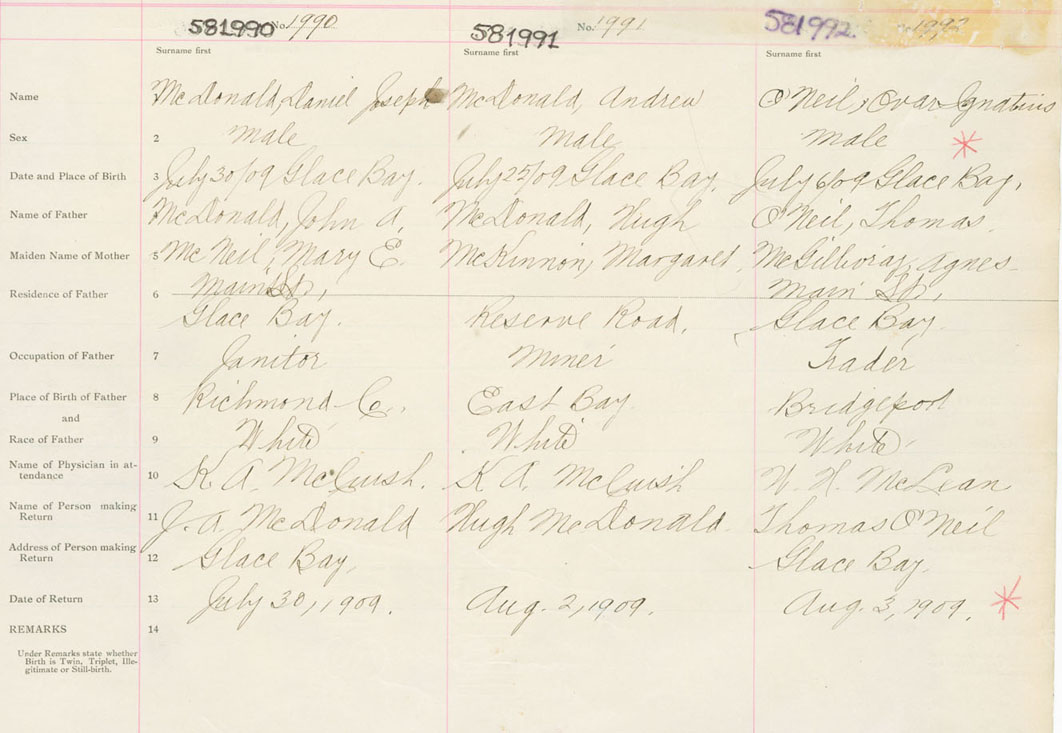 581990 No. 1990 581991 No. 1991 581992 1992
Surname first Surname first Surname first
Name McDonald, Daniel Joseph McDonald, Andrew O'Neil, Ignatius
Sex 2 Male Male Male
Date and Place of Birth 3 July 30/09 Glace Bay. July 25/09 Glace Bay. July 6/09 Glace Bay.
Name of Father McDonald, John A. McDonald, Hugh O'Neil, Thomas.
Maiden Name of Mother 5 McNeil, Mary E. McKinnon, Margaret McGillivray, Agnes
Main St., Main St.,
Residence of Father 6
Glace Bay. Reserve Road. Glace Bay.
Occupation of Father 7 Janitor Miner Trader
Place of Birth of Father 8 Richmond Co. East Bay. Bridgeport
and
Race of Father 9 White White White
Name of Physician in at-
tendance 10 K. A. McCuish. K. A. McCuish W. H. McLean
Name of Person making
Return 11 J. A. McDonald Hugh McDonald. Thomas O'Neil
Address of Person making
Return 12 Glace Bay. Glace Bay.
Date of Return 13 July 30, 1909. Aug. 2, 1909. Aug. 3, 1909.
REMARKS 14
Under Remarks state whether
Birth is Twin, Triplet, Ille-
gitimate or Still-birth.